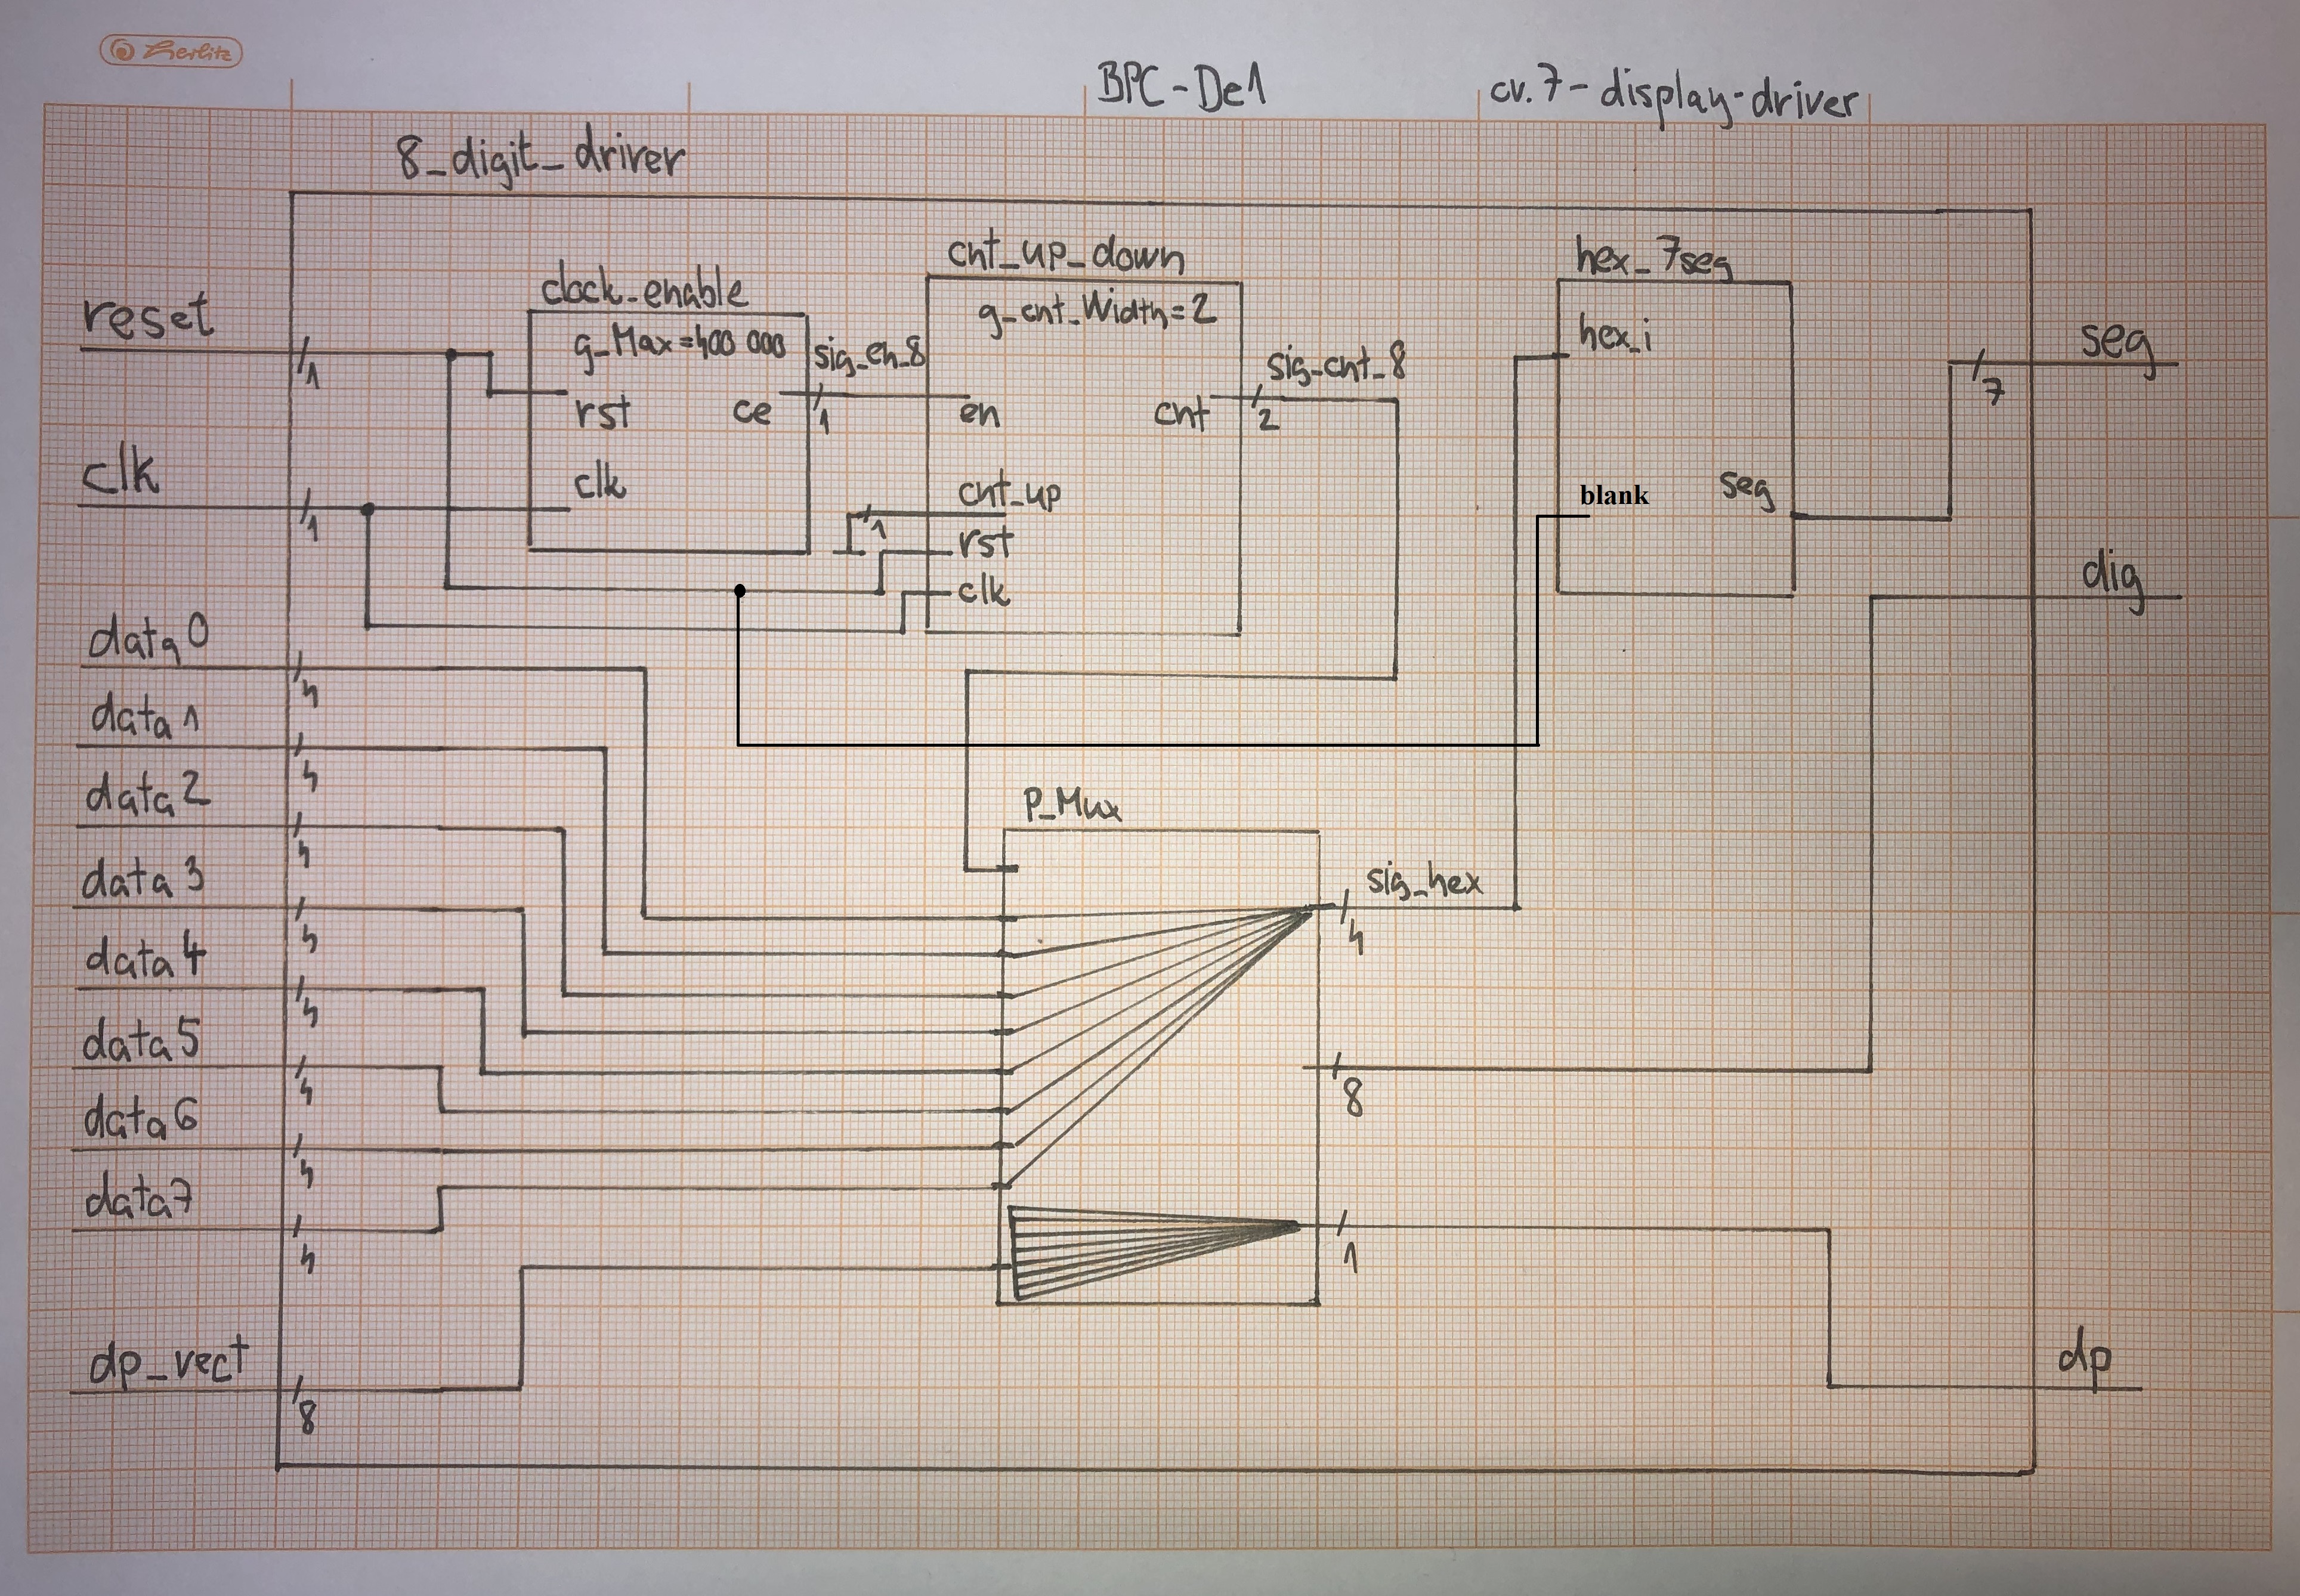 Herlitz
BPC-De1
cv.7-display-driver
8_digit_driver
clock_enable
g_Max=400 000
rst
ce
clk
cnt_up_down
g_cnt_Width=2
en
cnt
cnt_up
rst
clk
hex_7seg
hex_i
blank
seg
reset
1
clk
1
sig_en_8
1
1
sig_cnt_8
2
seg
7
dig
data0
4
data1
4
data2
4
data3
4
data4
4
data5
4
data6
4
data7
4
dp_vect
8
P_Mux
sig_hex
4
8
1
dp